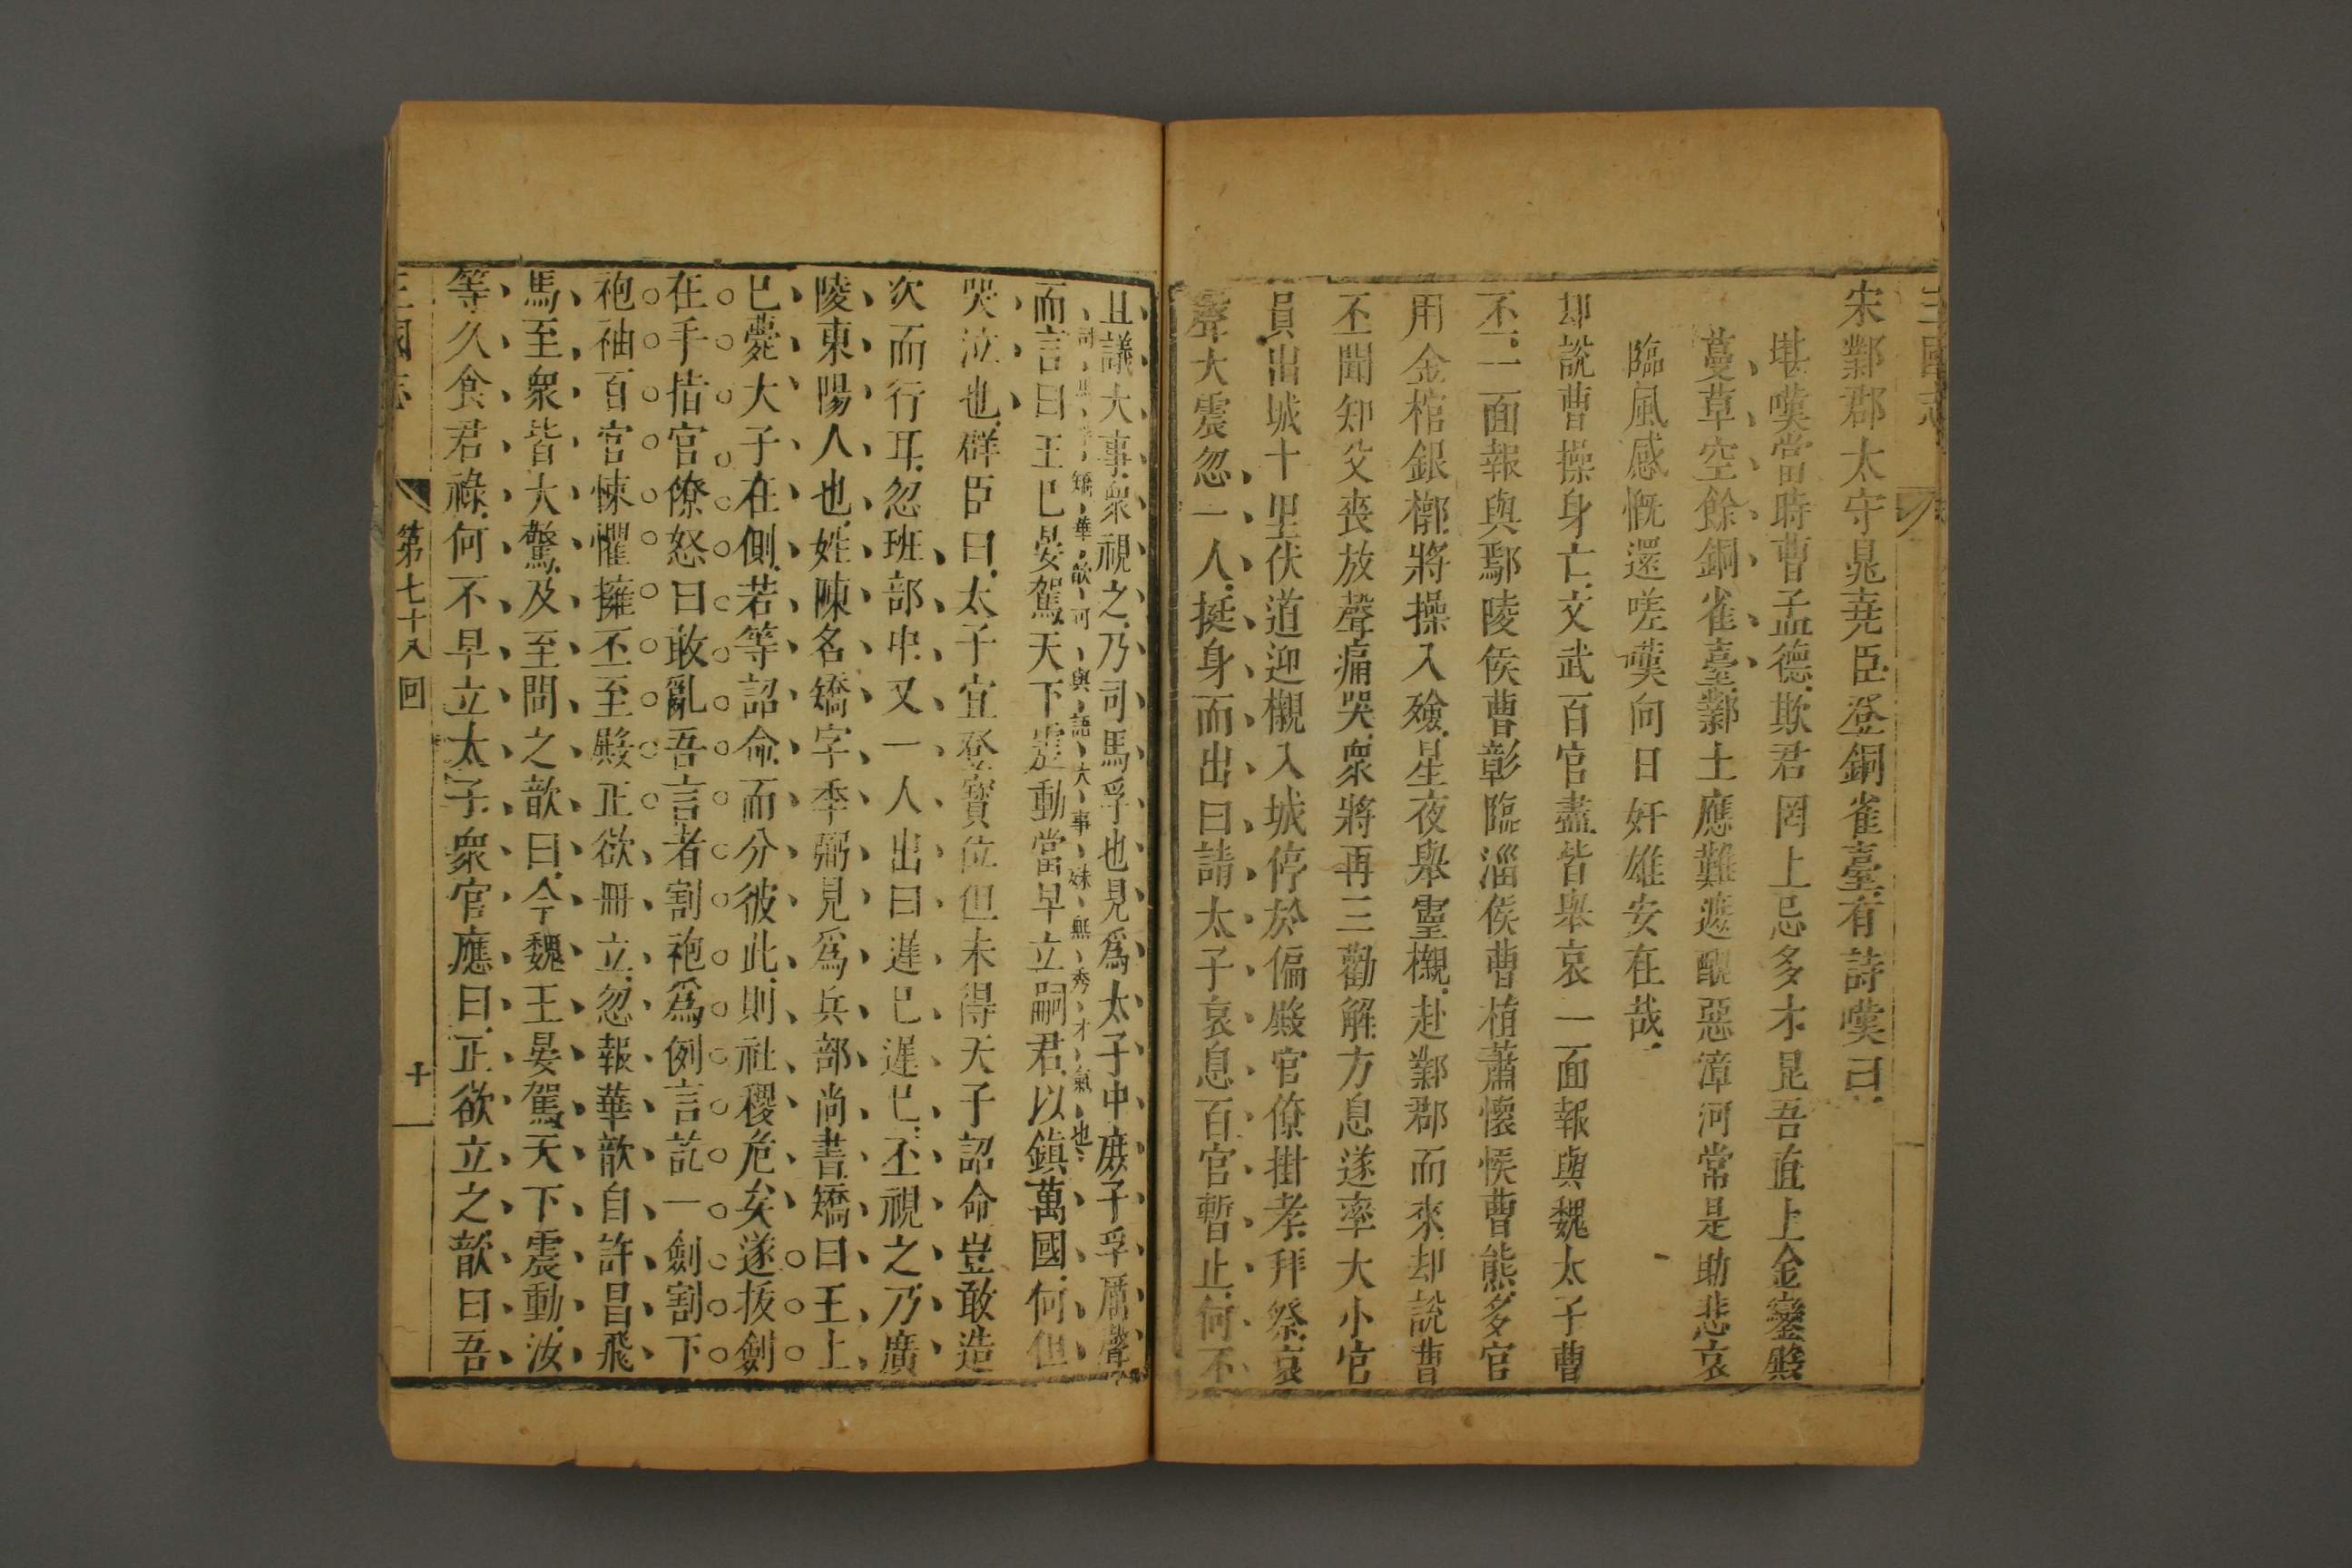 三國志
宋鄴郡太守晁堯臣登銅雀臺有詩嘆曰
堪嘆當時曹孟德欺君罔上忌多才昆吾直上金鑾殿
蔓草空餘銅雀臺鄴土應難遮醜惡漳河常是助悲哀
臨風感慨還嗟嘆向日奸雄安在哉
却說曹操身亡文武百官盡皆舉哀一面報與魏太子曹
丕一面報與鄢陵侯曹彰臨淄侯曹植蕭懷侯曹熊多官
用金棺銀槨將操入殮星夜舉靈櫬赴鄴郡而來却說曹
丕聞知父喪放聲痛哭衆將再三勸解方息遂率大小官
員出城十里伏道迎櫬入城停於偏殿官僚掛孝拜祭哀
聲大震忽一人挺身而出曰請太子哀息百官暫止何不
且議大事衆視之乃司馬孚也見爲太子中庶子孚厲聲
矯華歆可與語大事妹無秀才氣也
而言曰王已晏駕天下震動當早立嗣君以鎮萬國何但
哭泣也群臣曰太子宜登寳位但未得天子詔命豈敢造
次而行耳忽班部中又一人出曰遲已遲已丕視之乃廣
陵東陽人也姓陳名矯字季弼見爲兵部尚書矯曰王上
已薨太子在側若等詔命而分彼此則社稷危矣遂拔劍
在手指官僚怒曰敢亂吾言者割袍爲例言訖一劍割下
袍袖百官悚懼擁丕至殿正欲冊立忽報華歆自許昌飛
馬至衆皆大驚及至問之歆曰今魏王晏駕天下震動汝
等久食君祿何不早立太子衆官應曰正欲立之歆曰吾
三國志 第七十八回 十